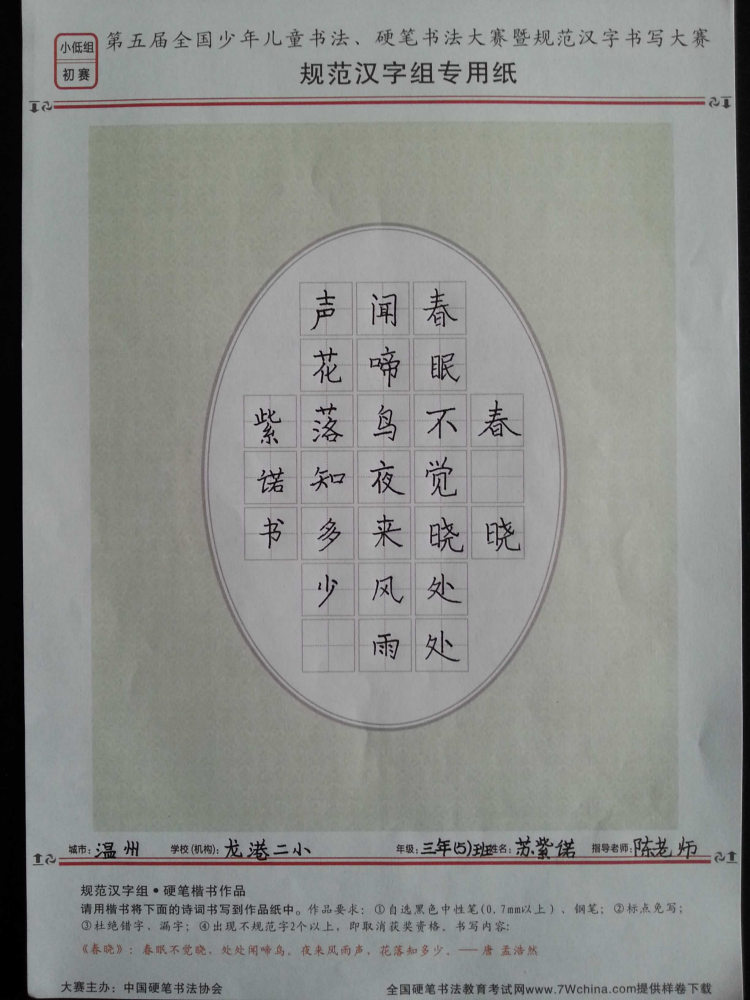 小低组
初赛
第五届全国少年儿童书法、硬笔书法大赛暨规范汉字书写大赛
规范汉字组专用纸
春晓
春眠不觉晓处处
闻啼鸟夜来风雨
声花落知多少
紫诺书
城市：温州 学校(机构)：龙港二小 年级：三年(5)班 姓名：苏紫诺 指导老师：陈老师
规范汉字组•硬笔楷书作品
请用楷书将下面的诗词书写到作品纸中。作品要求：①自选黑色中性笔(0.7mm以上)、钢笔；②标点免写；
③杜绝错字、漏字；④出现不规范字2个以上，即取消获奖资格。书写内容：
《春晓》：春眠不觉晓，处处闻啼鸟。夜来风雨声，花落知多少。——唐 孟浩然
大赛主办：中国硬笔书法协会 全国硬笔书法教育考试网www.7Wchina.com提供样卷下载